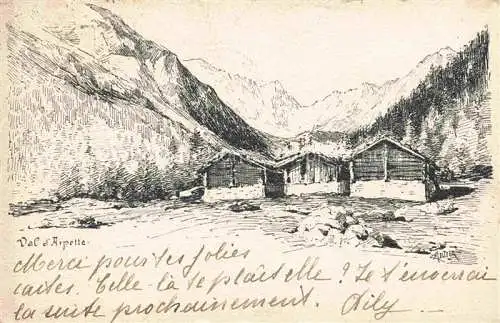 Val d'Arpette.
Merci pour tes jolies
cartes. Celle-là te plaît elle ? Je t'enverrai
la suite prochainement.